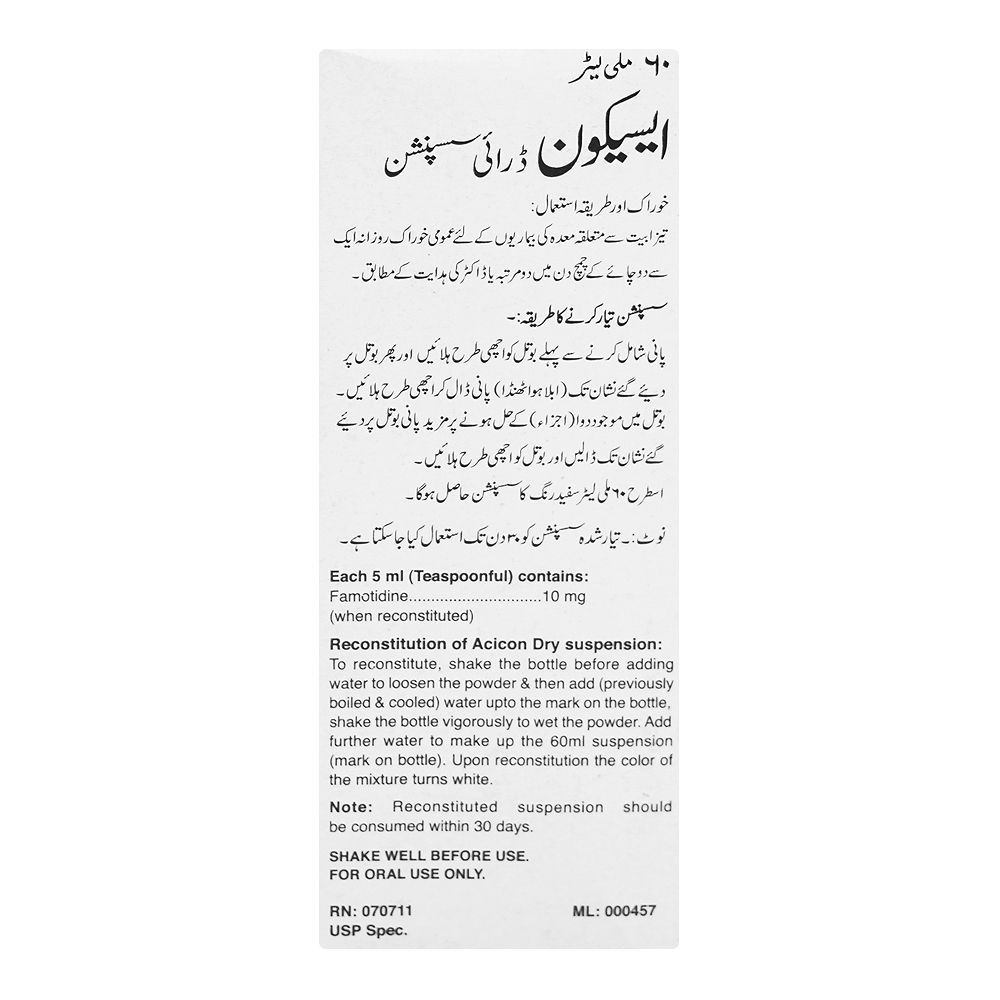 ۶۰ ملی لیٹر
ایسیکون ڈرائی سسپنشن
خوراک اور طریقہ استعمال:
تیزابیت سے متعلقہ معدہ کی بیماریوں کے لئے عمومی خوراک روزانہ ایک
سے دو چائے کے چمچ دن میں دو مرتبہ یا ڈاکٹر کی ہدایت کے مطابق ۔
سسپنشن تیار کرنے کا طریقہ:۔
پانی شامل کرنے سے پہلے بوتل کو اچھی طرح ہلائیں اور پھر بوتل پر
دیئے گئے نشان تک (ابلا ہوا ٹھنڈا) پانی ڈال کر اچھی طرح ہلائیں ۔
بوتل میں موجود دوا (اجزاء) کے حل ہونے پر مزید پانی بوتل پر دیئے
گئے نشان تک ڈالیں اور بوتل کو اچھی طرح ہلائیں ۔
اسطرح ۶۰ ملی لیٹر سفید رنگ کا سسپنشن حاصل ہوگا ۔
نوٹ:۔ تیار شدہ سسپنشن کو ۳۰ دن تک استعمال کیا جا سکتا ہے ۔
Each 5 ml (Teaspoonful) contains:
Famotidine..............................10 mg
(when reconstituted)
Reconstitution of Acicon Dry suspension:
To reconstitute, shake the bottle before adding
water to loosen the powder & then add (previously
boiled & cooled) water upto the mark on the bottle,
shake the bottle vigorously to wet the powder. Add
further water to make up the 60ml suspension
(mark on bottle). Upon reconstitution the color of
the mixture turns white.
Note: Reconstituted suspension should
be consumed within 30 days.
SHAKE WELL BEFORE USE.
FOR ORAL USE ONLY.
RN: 070711 ML: 000457
USP Spec.